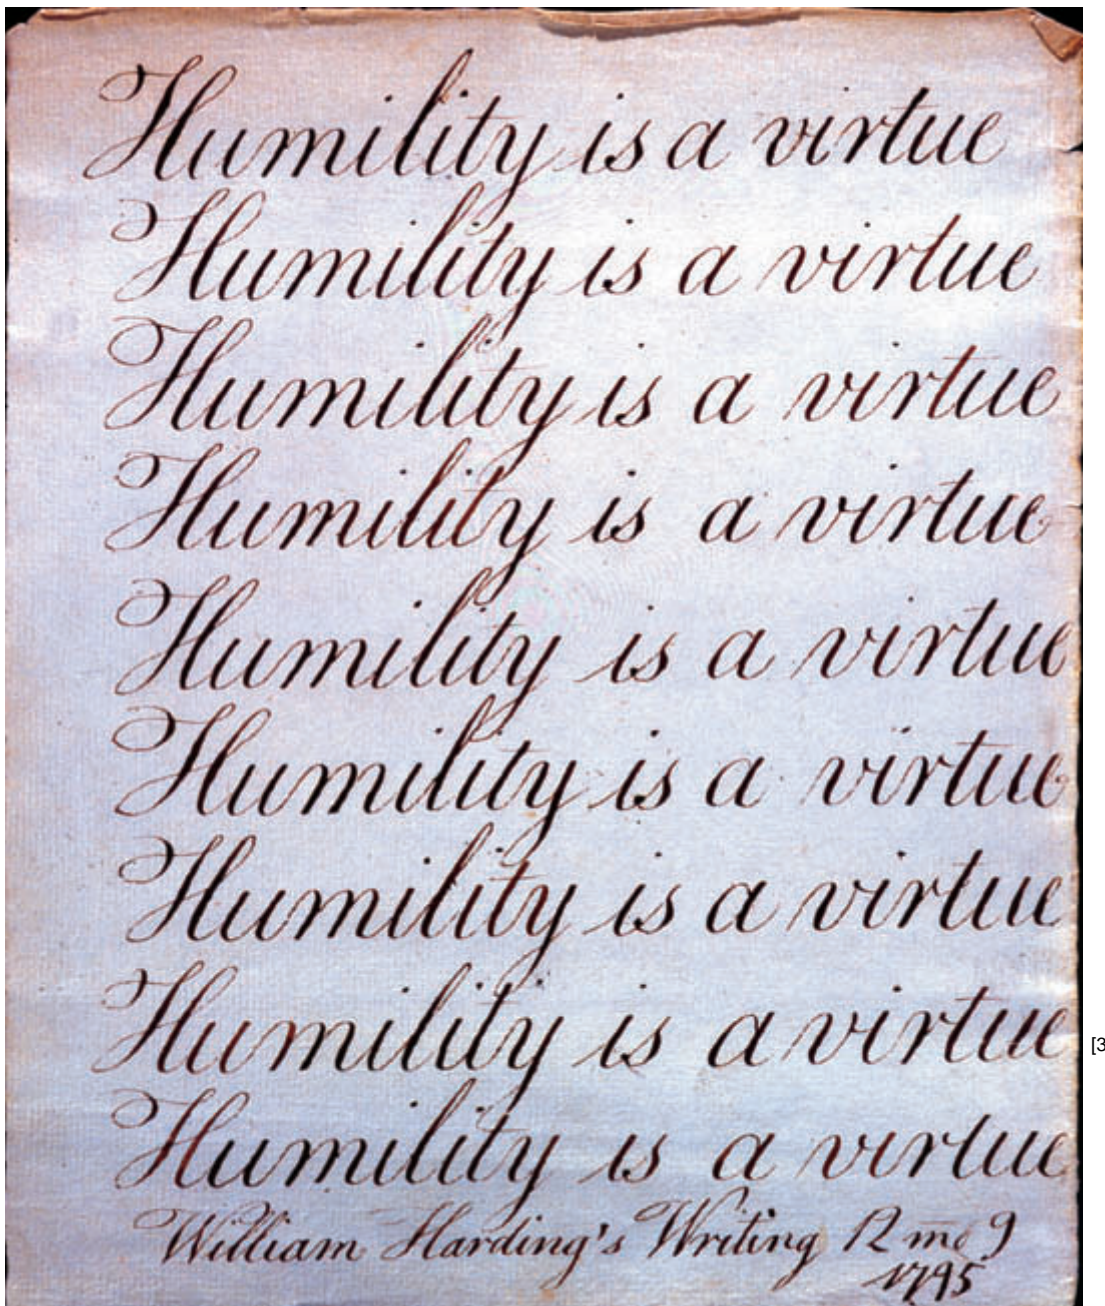 Humility is a virtue
Humility is a virtue
Humility is a virtue
Humility is a virtue
Humility is a virtue
Humility is a virtue
Humility is a virtue
Humility is a virtue
[3
Humility is a virtue
William Harding's Writing 12 mo 9
1795